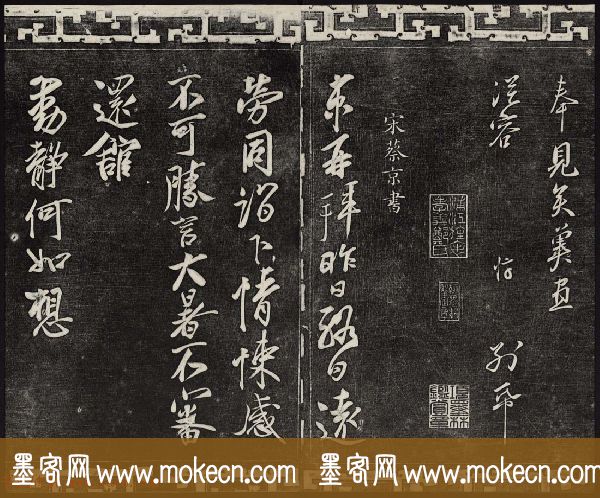 奉見矣冀
從容
宋蔡京書
京再拜昨日終日遠
勞同詣下情悚感
不可勝言大暑不審
還舘
動靜何如想
墨客网 www.mokecn.com 墨客网 www.mokecn.com